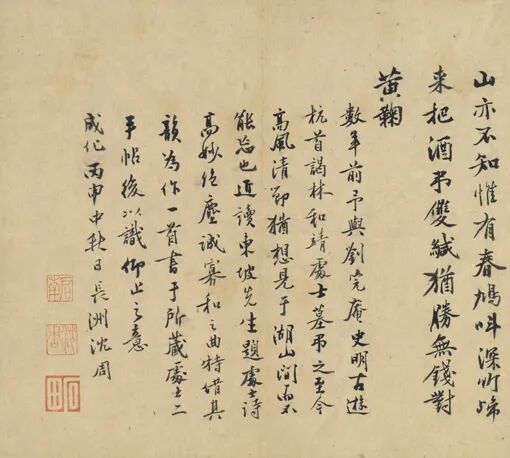 山亦不知惟有春鳩叫深竹歸
來把酒弔雙緘猶勝無錢對
黃鞠
數年前予與劉完庵史明古遊
杭首謁林和靖處士墓弔之至今
高風清節猶想見于湖山間而不
能忘也近讀東坡先生題處士詩
高妙絕塵誠寡和之曲特借其
韻為作一首書于所藏處士二
手帖後以識仰止之意
成化丙申中秋日長洲沈周